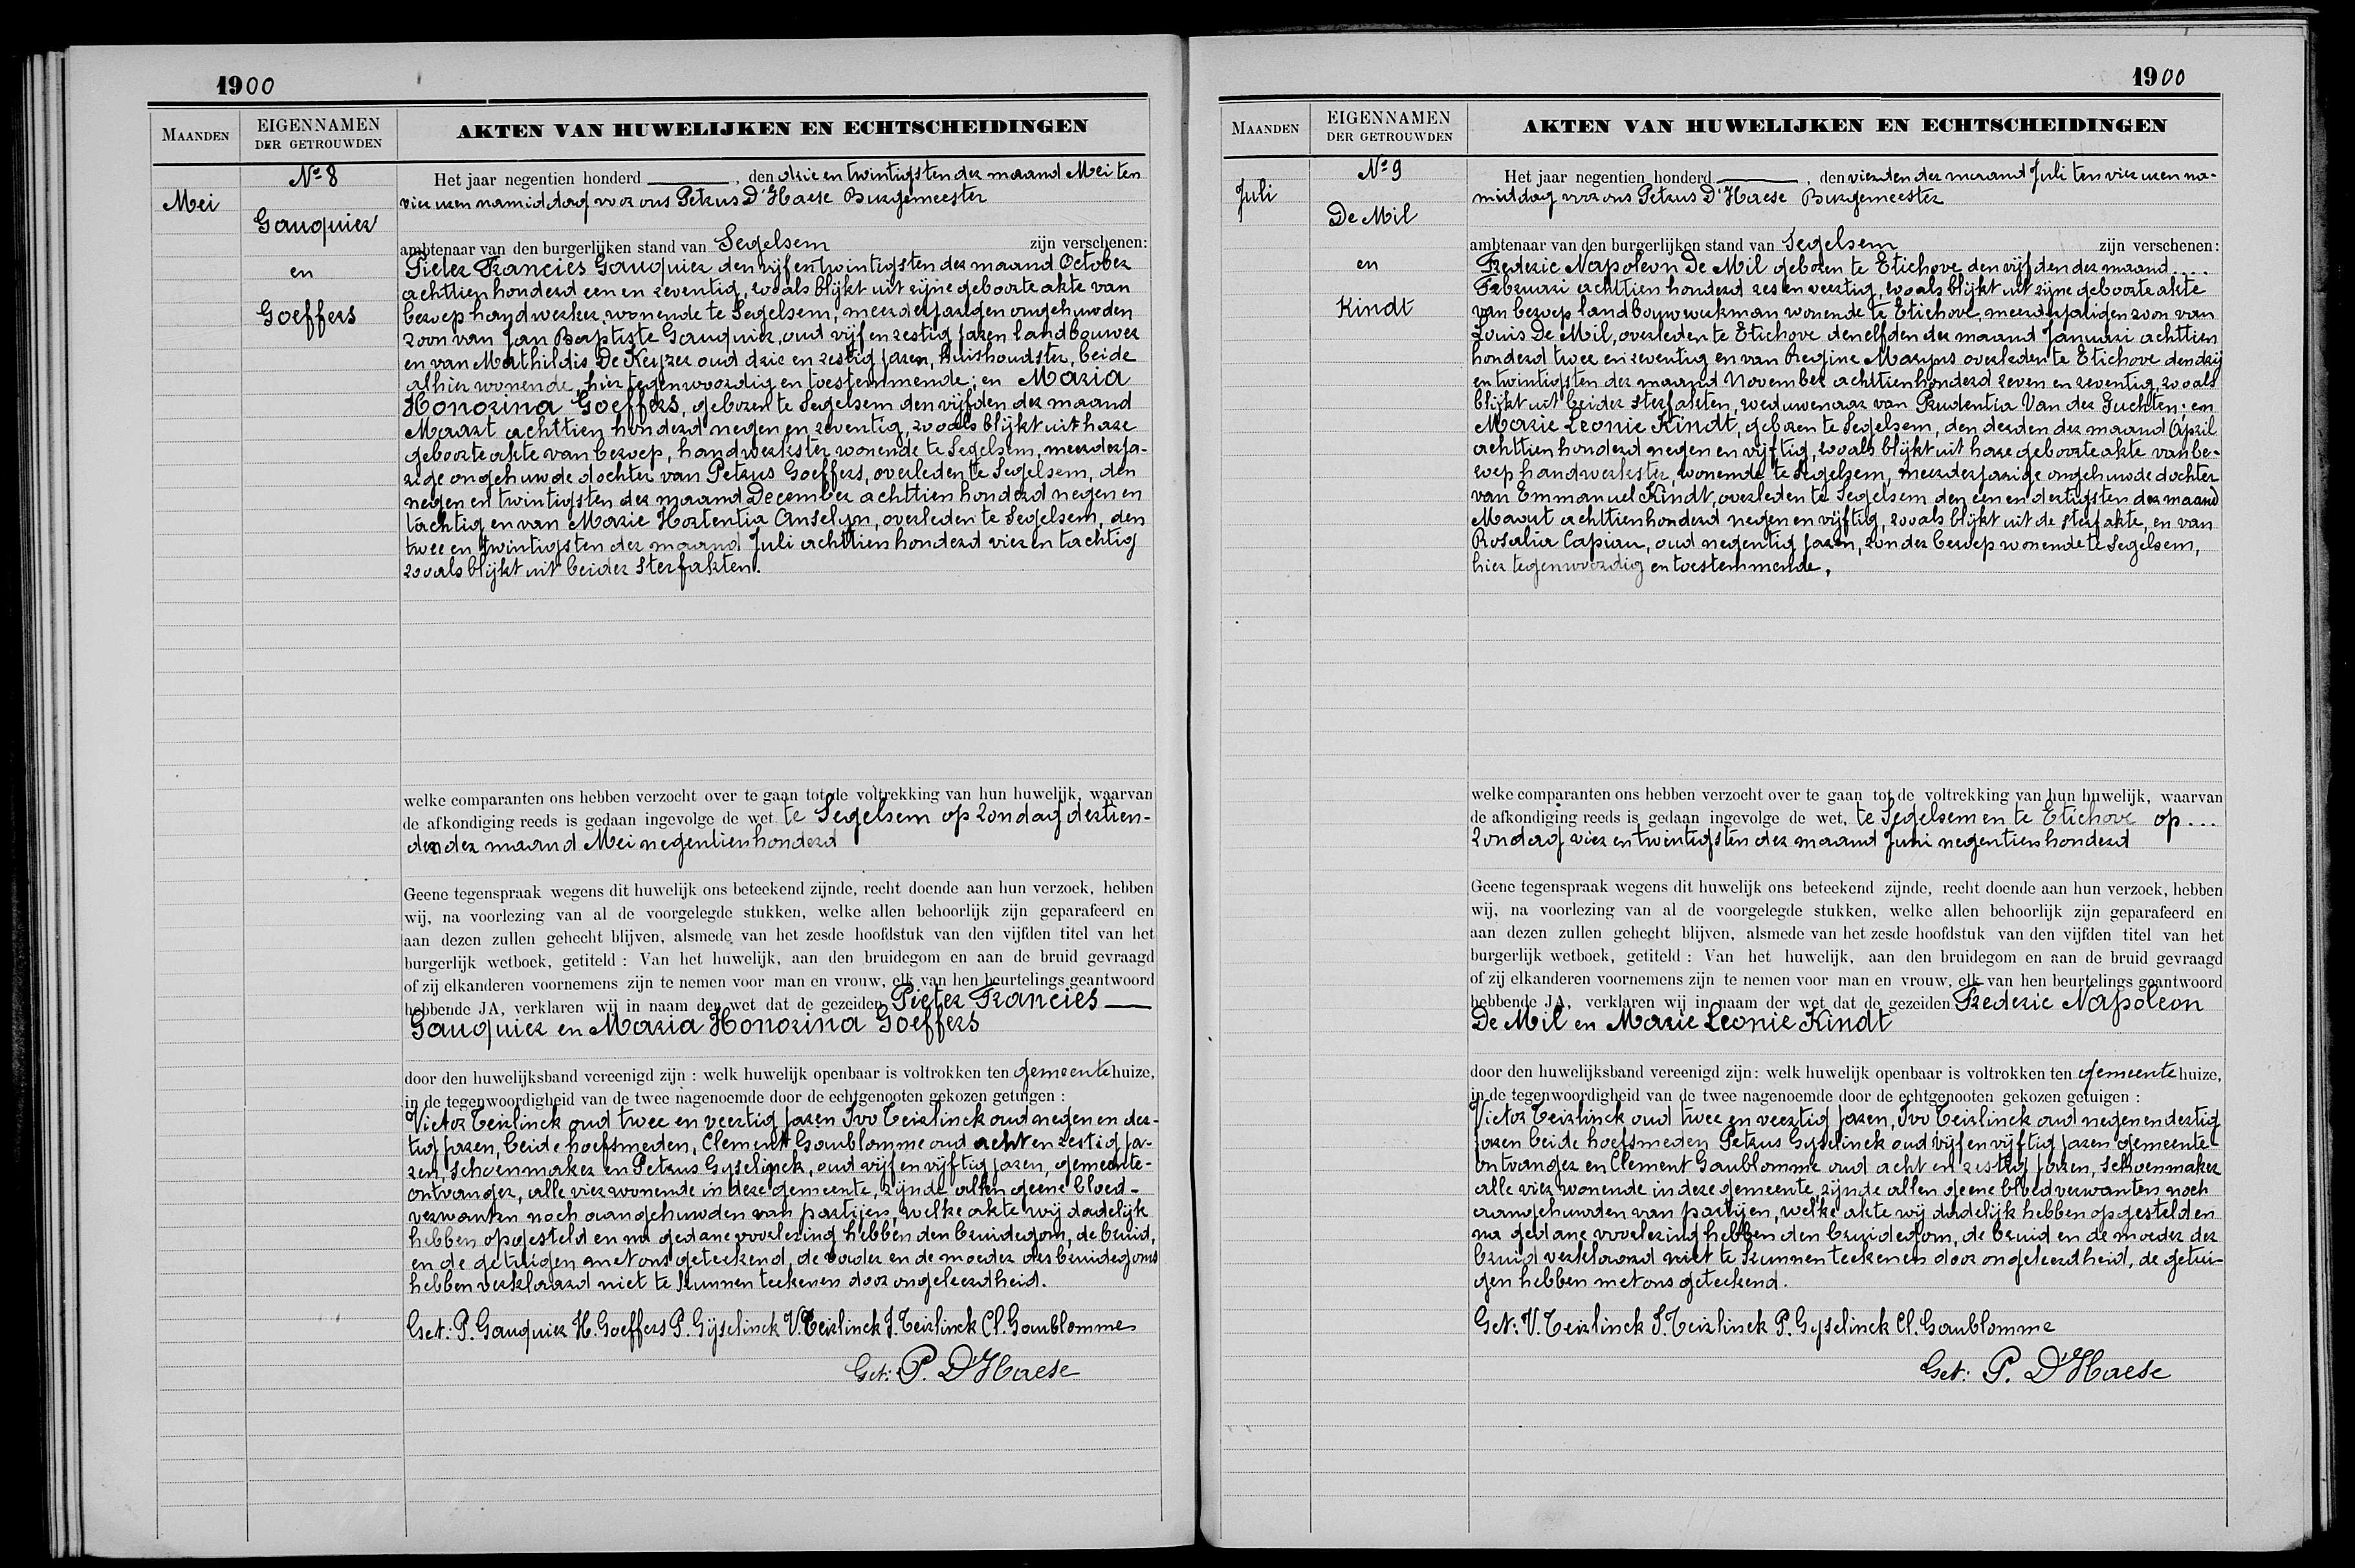 1900
MAANDEN
EIGENNAMEN
DER GETROUWDEN
AKTEN VAN HUWELIJKEN EN ECHTSCHEIDINGEN
Mei
No 8
Gauquier
en
Goeffers
Het jaar negentien honderd ———, den drie en twintigsten der maand Mei ten
vier uren namiddag voor ons Petrus D'Haese Burgemeester
ambtenaar van den burgerlijken stand van Segelsem zijn verschenen:
Pieter Francies Gauquier den vijf en twintigsten der maand October
achttien honderd een en zeventig, zooals blijkt uit zijne geboorte akte van
beroep handwerker, wonende te Segelsem, meerderjarigen ongehuwden
zoon van Jan Baptiste Gauquier, oud vijf en zestig jaren landbouwer
en van Mathildis De Keyzer oud drie en zestig jaren, huishoudster, beide
alhier wonende, hier tegenwoordig en toestemmende; en Maria
Honorina Goeffers, geboren te Segelsem den vijfden der maand
Maart achttien honderd negen en zeventig, zooals blijkt uit hare
geboorte akte van beroep, handwerkster wonende te Segelsem, meerderja-
rige ongehuwde dochter van Petrus Goeffers, overleden te Segelsem, den
negen en twintigsten der maand December achttien honderd negen en
tachtig en van Marie Hortentia Anselyn, overleden te Segelsem, den
twee en twintigsten der maand Juli achttien honderd vier en tachtig
zooals blijkt uit beider sterfakten.
welke comparanten ons hebben verzocht over te gaan tot de voltrekking van hun huwelijk, waarvan
de afkondiging reeds is gedaan ingevolge de wet te Segelsem op zondag dertien-
den der maand Mei negentienhonderd
Geene tegenspraak wegens dit huwelijk ons beteekend zijnde, recht doende aan hun verzoek, hebben
wij, na voorlezing van al de voorgelegde stukken, welke allen behoorlijk zijn geparafeerd en
aan dezen zullen gehecht blijven, alsmede van het zesde hoofdstuk van den vijfden titel van het
burgerlijk wetboek, getiteld : Van het huwelijk, aan den bruidegom en aan de bruid gevraagd
of zij elkanderen voornemens zijn te nemen voor man en vrouw, elk van hen beurtelings geantwoord
hebbende JA, verklaren wij in naam der wet dat de gezeiden Pieter Francies —
Gauquier en Maria Honorina Goeffers
door den huwelijksband vereenigd zijn : welk huwelijk openbaar is voltrokken ten gemeentehuize,
in de tegenwoordigheid van de twee nagenoemde door de echtgenooten gekozen getuigen :
Victor Teirlinck oud twee en veertig jaren Ivo Teirlinck oud negen en der-
tig jaren, beide hoefsmeden, Clement Gaublomme oud acht en zestig ja-
ren, schoenmaker en Petrus Gyselinck, oud vijf en vijftig jaren, gemeente-
ontvanger, alle vier wonende in deze gemeente, zijnde allen geene bloed-
verwanten noch aangehuwden van partijen, welke akte wij dadelijk
hebben opgesteld en na gedane voorlezing hebben den bruidegom, de bruid,
en de getuigen met ons geteekend, de vader en de moeder des bruidegoms
hebben verklaard niet te kunnen teekenen door ongeleerdheid.
Get: P. Gauquier H. Goeffers P. Gijselinck V. Teirlinck I. Teirlinck Cl. Gaublomme
Get: P. D'Haese
1900
MAANDEN
EIGENNAMEN
DER GETROUWDEN
AKTEN VAN HUWELIJKEN EN ECHTSCHEIDINGEN
Juli
No 9
De Mil
en
Kindt
Het jaar negentien honderd ———, den vierden der maand Juli ten vier uren na-
middag voor ons Petrus D'Haese Burgemeester
ambtenaar van den burgerlijken stand van Segelsem zijn verschenen:
Frederic Napoleon De Mil geboren te Etichove den vijfden der maand ....
Februari achttien honderd zes en veertig, zooals blijkt uit zijne geboorte akte
van beroep landbouwwerkman wonende te Etichove, meerderjarigen zoon van
Louis De Mil, overleden te Etichove den elfden der maand Januari achttien
honderd twee en zeventig en van Regine Maryns overleden te Etichove den drij
en twintigsten der maand November achttienhonderd zeven en zeventig, zooals
blijkt uit beider sterfakten, weduwenaar van Prudentia Van der Guchten; en
Marie Leonie Kindt, geboren te Segelsem, den derden der maand April
achttien honderd negen en vijftig, zooals blijkt uit hare geboorte akte van be-
roep handwerkster, wonende te Segelsem, meerderjarige ongehuwde dochter
van Emmanuel Kindt, overleden te Segelsem den een en dertigsten der maand
Maart achttienhonderd negen en vijftig, zooals blijkt uit de sterfakte, en van
Rosalia Capiau, oud negentig jaren, zonder beroep wonende te Segelsem,
hier tegenwoordig en toestemmende,
welke comparanten ons hebben verzocht over te gaan tot de voltrekking van hun huwelijk, waarvan
de afkondiging reeds is gedaan ingevolge de wet, te Segelsem en te Etichove op ...
zondag vier en twintigsten der maand Juni negentien honderd
Geene tegenspraak wegens dit huwelijk ons beteekend zijnde, recht doende aan hun verzoek, hebben
wij, na voorlezing van al de voorgelegde stukken, welke allen behoorlijk zijn geparafeerd en
aan dezen zullen gehecht blijven, alsmede van het zesde hoofdstuk van den vijfden titel van het
burgerlijk wetboek, getiteld : Van het huwelijk, aan den bruidegom en aan de bruid gevraagd
of zij elkanderen voornemens zijn te nemen voor man en vrouw, elk van hen beurtelings geantwoord
hebbende JA, verklaren wij in naam der wet dat de gezeiden Frederic Napoleon
De Mil en Marie Leonie Kindt
door den huwelijksband vereenigd zijn: welk huwelijk openbaar is voltrokken ten gemeentehuize,
in de tegenwoordigheid van de twee nagenoemde door de echtgenooten gekozen getuigen :
Victor Teirlinck oud twee en veertig jaren, Ivo Teirlinck oud negen en dertig
jaren beide hoefsmeden Petrus Gyselinck oud vijf en vijftig jaren gemeente-
ontvanger en Clement Gaublomme oud acht en zestig jaren, schoenmaker
alle vier wonende in deze gemeente, zijnde allen geene bloedverwanten noch
aangehuwden van partijen, welke akte wij dadelijk hebben opgesteld en
na gedane voorlezing hebben den bruidegom, de bruid en de moeder der
bruid verklaard niet te kunnen teekenen door ongeleerdheid, de getui-
gen hebben met ons geteekend.
Get: V. Teirlinck I. Teirlinck P. Gyselinck Cl. Gaublomme
Get: P. D'Haese